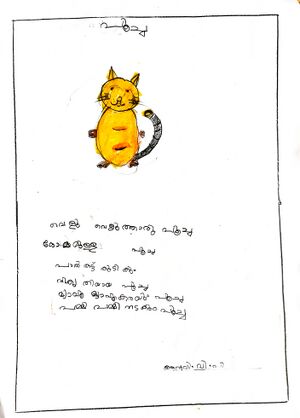 പൂച്ച
വെളു വെളുത്തൊരു പൂച്ച
രോമമുള്ള പൂച്ച
പാൽ കട്ട് കുടിക്കും
പൂച്ച
മ്യാവൂ മ്യാവൂ കരയും പൂച്ച
പമ്മി പമ്മി നടക്കും പൂച്ച